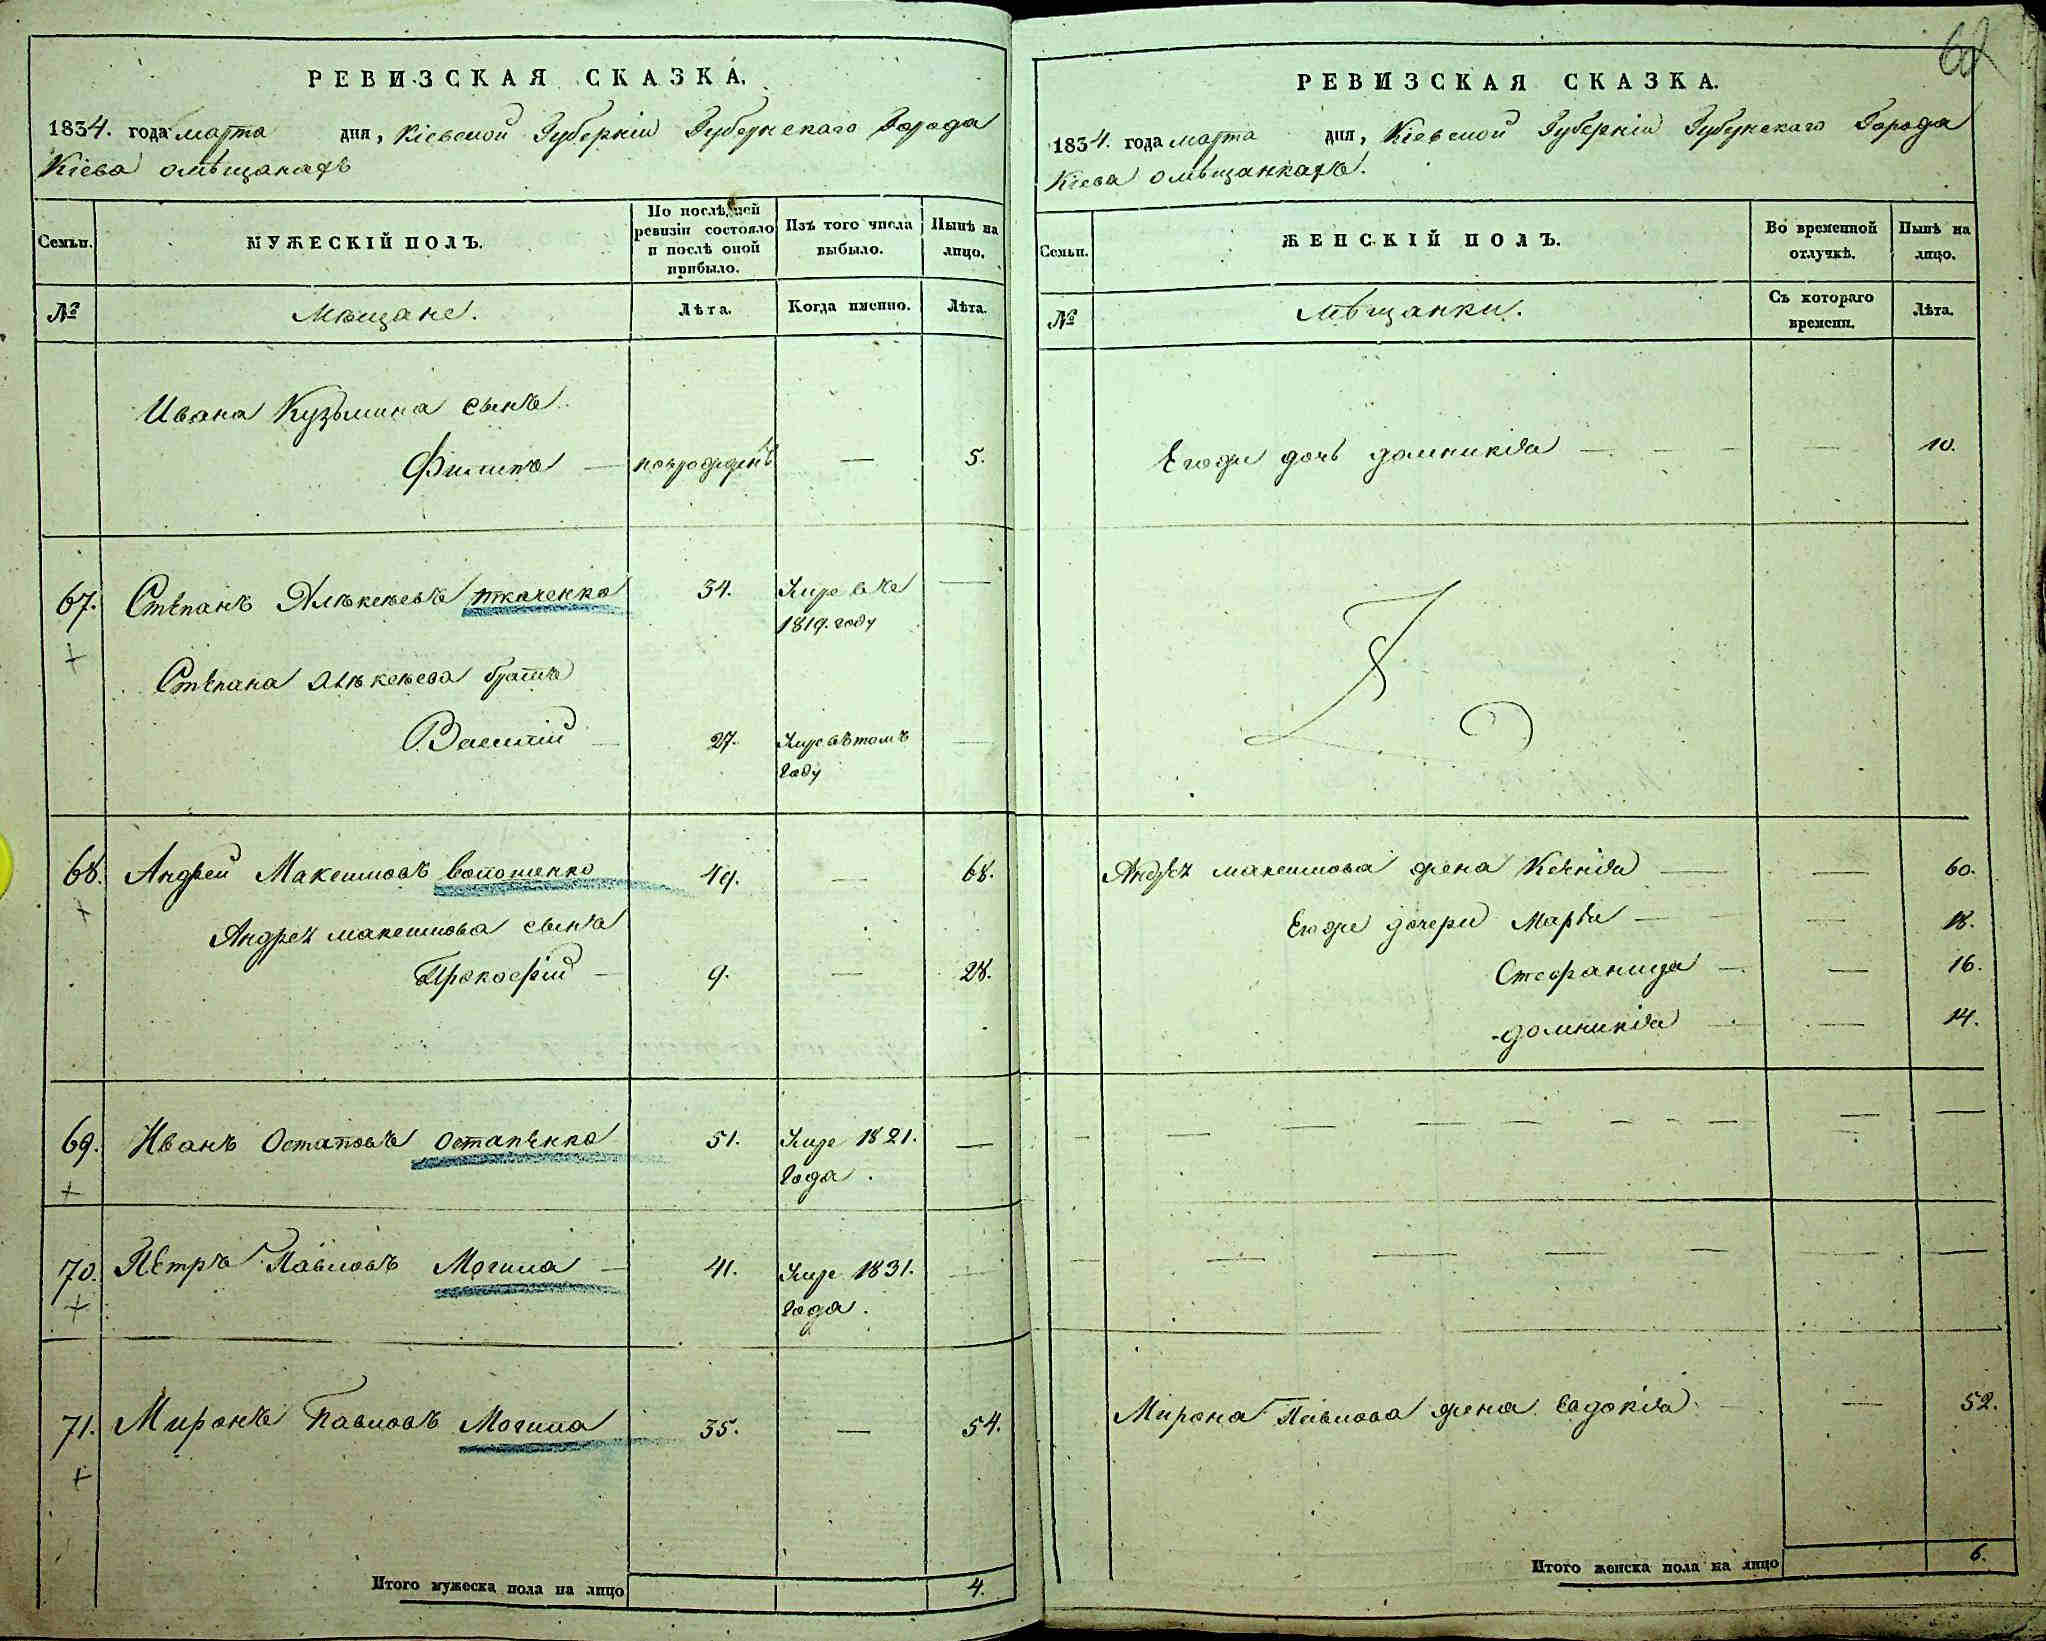 РЕВИЗСКАЯ СКАЗКА.
1834. года марта дня, Кіевской Губерніи Губернскаго Города
Кіева омѣщанахъ
Семьи.
МУЖЕСКІЙ ПОЛЪ.
По послѣдней ревизіи состояло и послѣ оной прибыло.
Изъ того числа выбыло.
Нынѣ на лицо.
№
Мѣщане.
Лѣта.
Когда именно.
Лѣта.
Ивана Кузьмина сынъ
Филипъ — новорожденъ — 5.
67. Степанъ Алѣксѣевъ Ткаченко 34. Умре въ 1819. году —
Степана Алѣксѣева братъ
Василій — 27. Умре вътомъ году —
68. Андрей Максимовъ Волошенко 49. — 68.
Андрея максимова сынъ
Прокофій — 9. — 28.
69. Иванъ Остаповъ Остапенко 51. Умре 1821. года. —
70. Петръ Павловъ Могила — 41. Умре 1831. года. —
71. Миронъ Павловъ Могила 35. — 54.
Итого мужеска пола на лицо 4.
РЕВИЗСКАЯ СКАЗКА.
1834. года марта дня, Кіевской Губерніи Губернскаго Города
Кіева омѣщанкахъ.
Семьи.
ЖЕНСКІЙ ПОЛЪ.
Во временной отлучкѣ.
Нынѣ на лицо.
№
Мѣщанки.
Съ котораго времени.
Лѣта.
Егоже дочь домникія — — 10.
Андрея максимова жена Ксенія — — 60.
Егоже дочери Марѳа — — 18.
Стефанида — — 16.
домникія — — 14.
Мирона Павлова жена Евдокія — — 52.
Итого женска пола на лицо 6.